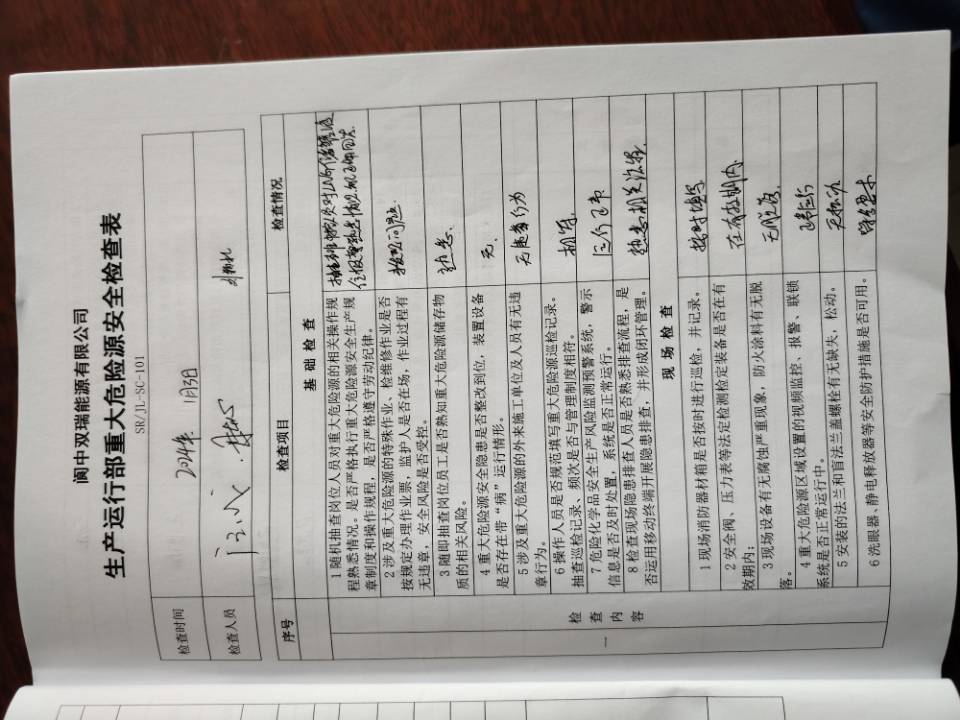 阆中双瑞能源有限公司
生产运行部重大危险源安全检查表
SR/JL-SC-101
检查时间
2024年 1月3日
检查人员
序号
检查项目
检查情况
基 础 检 查
一
检查内容
1 随机抽查岗位人员对重大危险源的相关操作规
程熟悉情况。是否严格执行重大危险源安全生产规
章制度和操作规程，是否严格遵守劳动纪律。
2 涉及重大危险源的特殊作业、检维修作业是否
按规定办理作业票，监护人是否在场，作业过程有
无违章，安全风险是否受控。
3 随即抽查岗位员工是否熟知重大危险源储存物
质的相关风险。
熟悉.
4 重大危险源安全隐患是否整改到位，装置设备
是否存在带“病”运行情形。
无.
5 涉及重大危险源的外来施工单位及人员有无违
章行为。
无违章行为
6 操作人员是否规范填写重大危险源巡检记录。
抽查巡检记录、频次是否与管理制度相符。
相符.
7 危险化学品安全生产风险监测预警系统，警示
信息是否及时处置，系统是否正常运行。
运行正常
8 检查现场隐患排查人员是否熟悉排查流程，是
否运用移动终端开展隐患排查，并形成闭环管理。
熟悉相关流程.
现 场 检 查
1 现场消防器材箱是否按时进行巡检，并记录。
按时填写
2 安全阀、压力表等法定检测检定装备是否在有
效期内;
在有效期内
3 现场设备有无腐蚀严重现象，防火涂料有无脱
落。
4 重大危险源区域设置的视频监控、报警、联锁
系统是否正常运行中。
正常运行
5 安装的法兰和盲法兰盖螺栓有无缺失，松动。
无松动
6 洗眼器、静电释放器等安全防护措施是否可用。